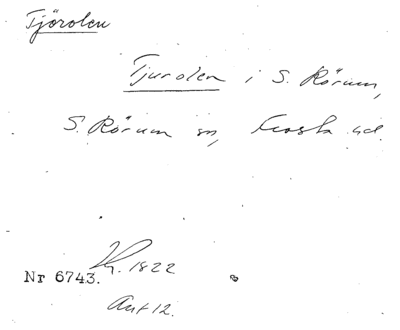 Tjörolen
Tjurolen i S. Rörum,
S. Rörum sn, Frosta hd.
Nr 6743. Kh. 1822
Akt 12.